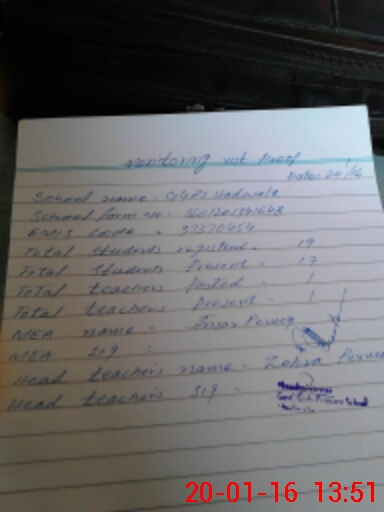 monitoring visit proof
Date: 20/1/16
School name: GGPS Hadwala
School form No:
EMIS Code = 37370454
Total students registerd = 19
Total Students Present = 17
Total teachers Posted = 1
Total teachers Present = 1
MEA name = Ansar Pervez
MEA sig =
Head teacher's name = Zehra Perveen
Head teacher's sig =
Headmistress
20-01-16 13:51